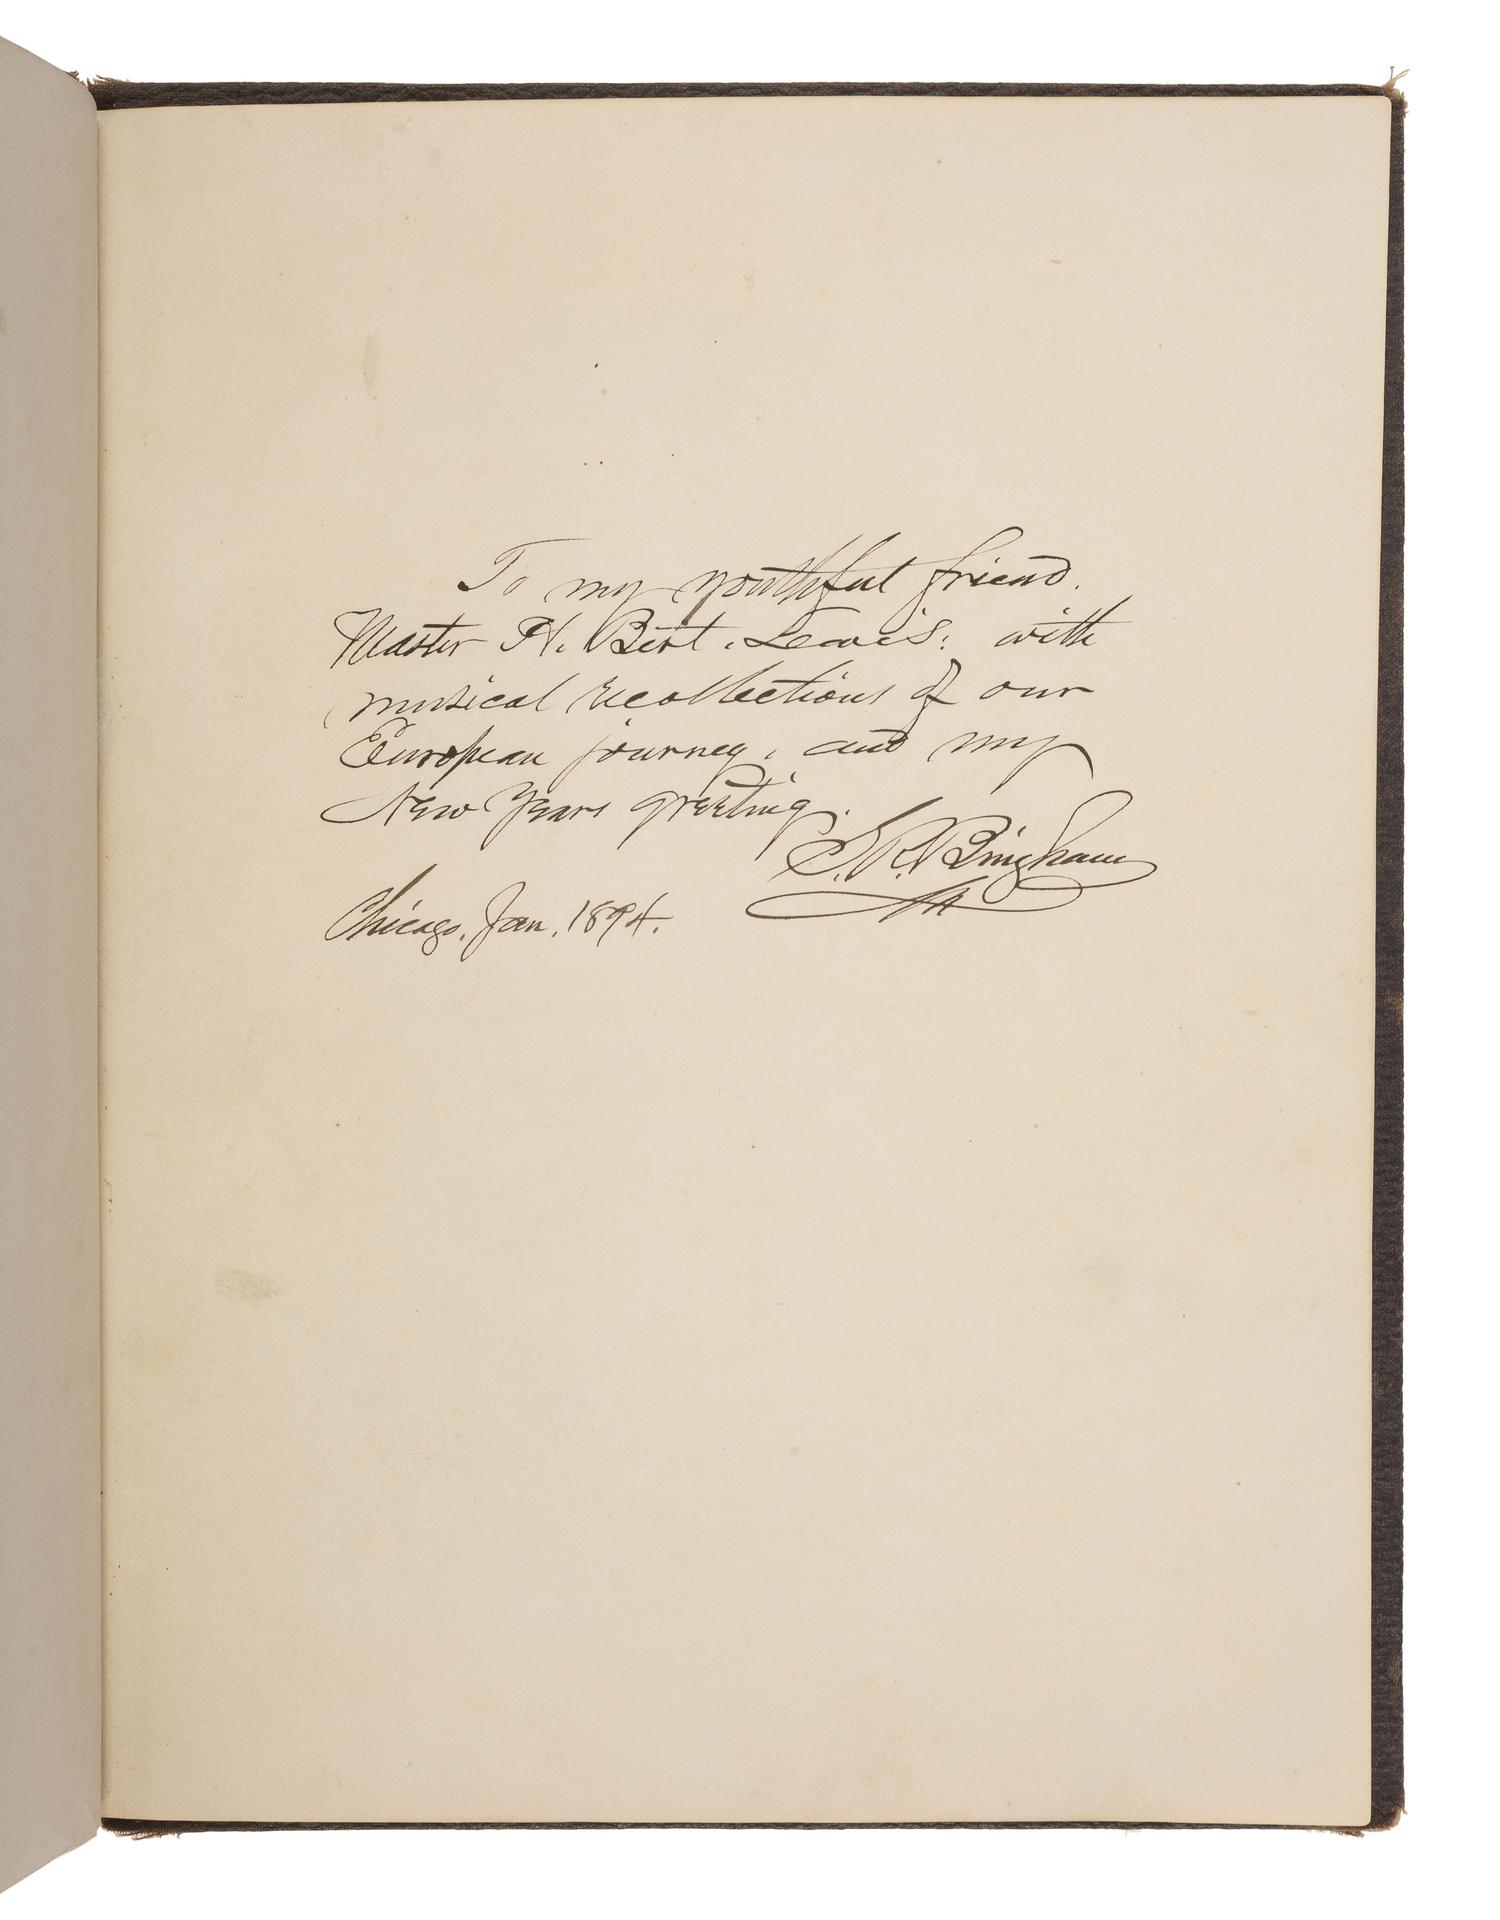 To my youthful friend.
Master H. Bert. Lewis: with
musical recollections of our
European journey, and my
New Years greeting.
S. R. Bingham
Chicago, Jan. 1894.